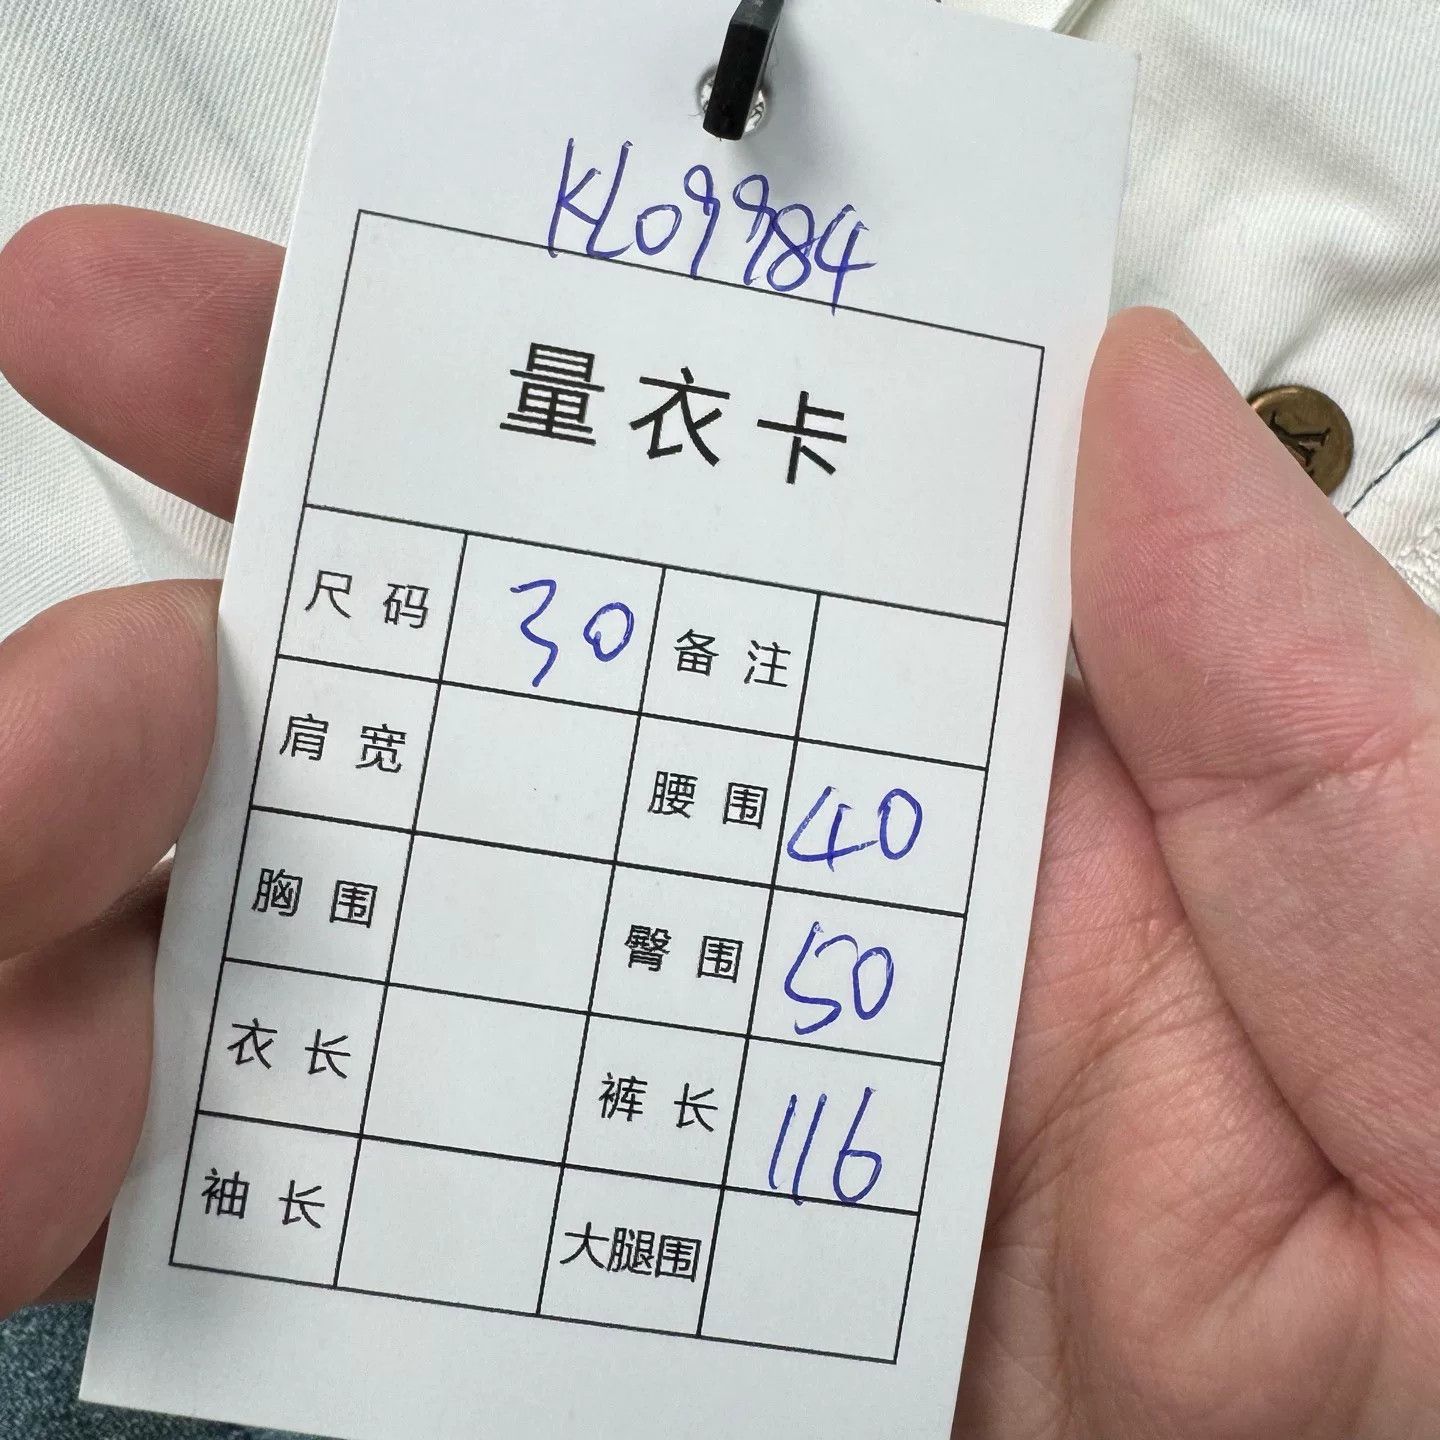 KL09984
量衣卡
尺码 30 备注
肩宽 腰围 40
胸围 臀围 50
衣长 裤长 116
袖长 大腿围